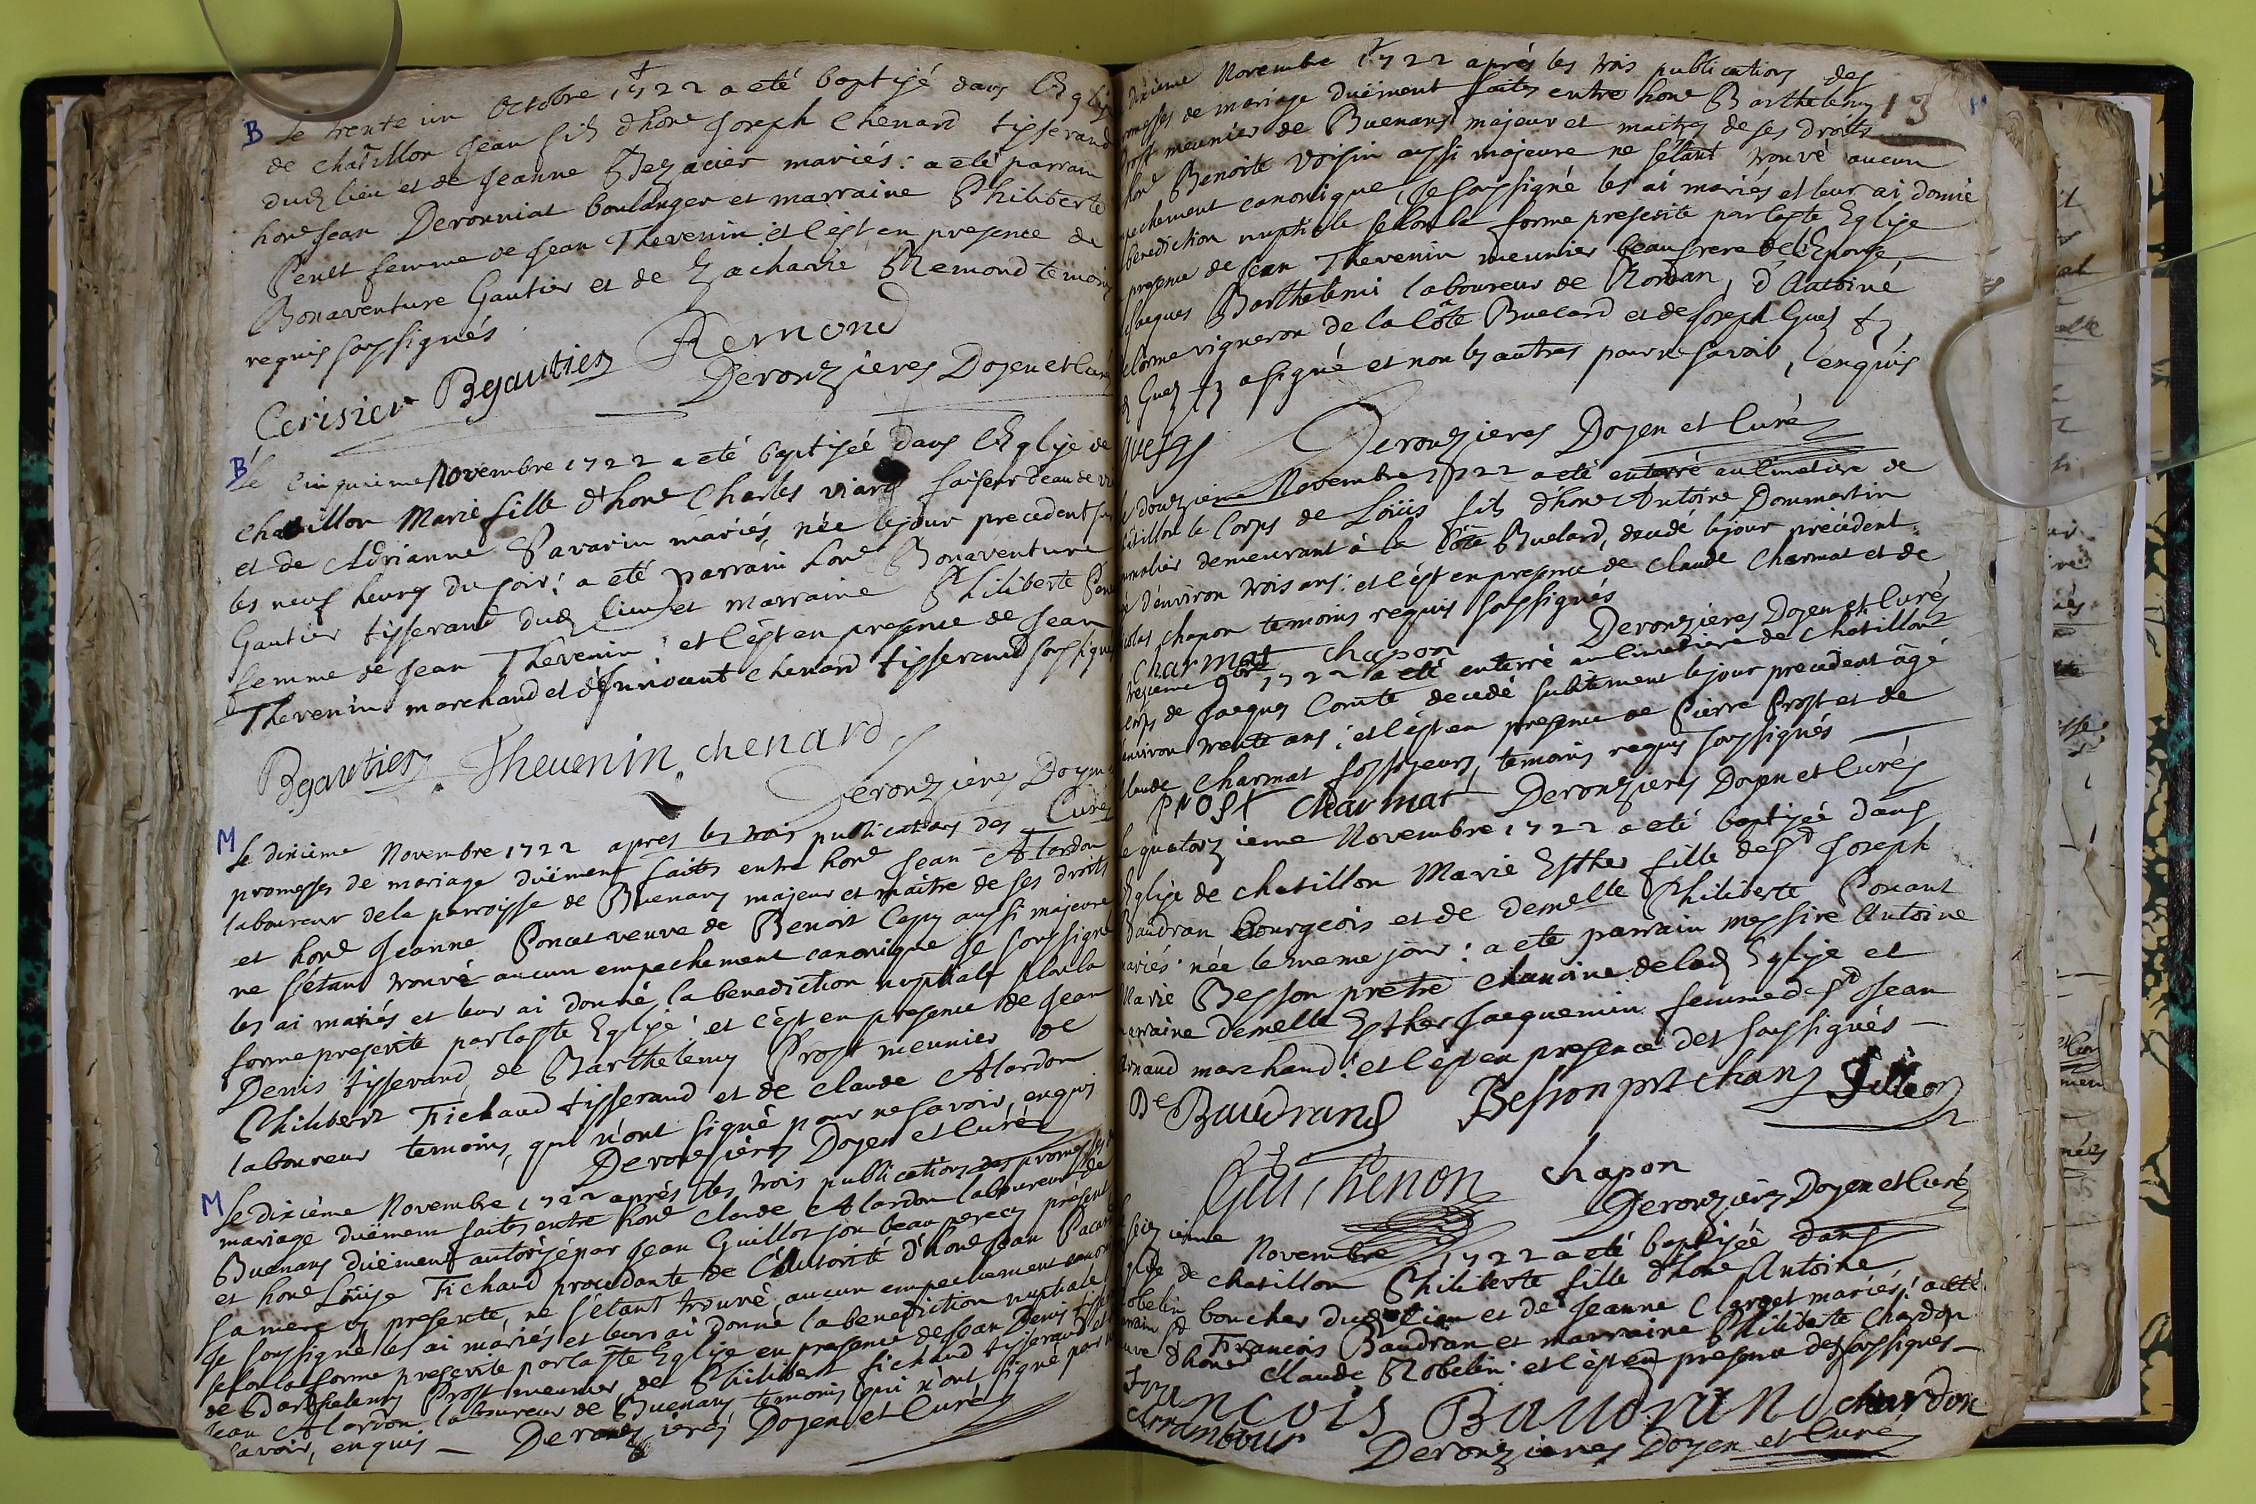 B Le trente un Octobre 1722 a eté baptisé dans l'Eglise
de chatillon Jean fils d'hone Joseph Chenard tisserand
dudt lieu et de Jeanne Bezacier mariés: a eté parrain
hone Jean Deronniat boulanger et marraine Philiberte
Penet femme de Jean Thevenin: et c'est en presence de
Bonaventure Gautier et de Zacharie Remond temoins
requis soussignés
Remond
Cerisier Bgautier
Deronzieres Doyen et Curé
B Le cinquieme Novembre 1722 a eté baptisée dans l'Eglise de
chatillon Marie fille d'hone Charles viard faiseur d'eau de vie
et de Adrianne Savarin mariés, née le jour precedent sur
les neuf heures du soir: a eté parrain hone Bonaventure
Gautier tisserand dudt lieu et marraine Philiberte Penet
femme de Jean Thevenin: et c'est en presence de Jean
Thevenin marchand et d'Innocent Chenard tisserand soussignés
Bgautier Thevenin chenard
Deronzières Doyen et
Curé
M Le dixième Novembre 1722 apres les trois publications des
promesses de mariage duëment faites entre hone Jean Alardon
laboureur de la parroisse de Buenans majeur et maitre de ses droits
et hone Jeanne Poncet veuve de Benoit Capy aussi majeure
ne s'étant trouvé aucun empechement canonique Je soussigné
les ai mariés et leur ai donné la benediction nuptiale selon la
forme prescrite par la ste Eglise: et c'est en presence de Jean
Denis tisserand, de Barthelemy Prost meunier de
Philibert Fichaud tisserand et de Claude Alardon
laboureur temoins, qui n'ont signé pour ne savoir, enquis
Deronzières Doyen et Curé
M Le dixième Novembre 1722 aprés les trois publications des promesses de
mariage duëment faites entre hone Claude Alardon laboureur de
Buenans duëment autorisé par Jean Guillot son beau pere cy présent
et hone Loüise Fichaud procedante de l'Autorité d'hone Jean
sa mere cy presente, ne s'étant trouvé aucun empechement canonique
Je soussigné les ai mariés et leur ai donné la benediction nuptiale
selon la forme prescrite par la ste Eglise en presence de Jean Denis tisserand
de Barthelemy Prost meunier, de Philibert fichaud tisserand et de
Jean Alardon laboureur de Buenans temoins qui n'ont signé pour ne
savoir, enquis — Deronzierés Doyen et Curé
13
dixième Novembre 1722 aprés les trois publications des
promesses de mariage duëment faites entre hone Barthelemy
Prost meunier de Buenans majeur et maitre de ses droits
hone Benoite Voisin aussi majeure ne s'étant trouvé aucun
empechement canonique, Je soussigné les ai mariés et leur ai donné
benediction nuptiale selon la forme prescrite par la ste Eglise
presence de Jean Thevenin meunier beaufrere de l'Epouse,
Jacques Barthelemi laboureur de Roman, d'Antoine
delorme vigneron de la Côte Buelard et de Joseph Guez
Guez a signé et non les autres pour ne savoir, enquis
guez
Deronzieres Doyen et Curé
Le douzième Novembre 1722 a eté enterré au Cimetiere de
chatillon le Corps de Loüis fils d'hone Antoine Dommartin
journalier demeurant à la Côte Buelard, decedé le jour précédent
agé d'environ trois ans: et c'est en presence de Claude Charmat et de
Nicolas chapon temoins requis soussignés
Charmat chapon
Deronzieres Doyen et Curé
Le treizieme 9bre 1722 a eté enterré au Cimetiere de Chatillon
corps de Jacques Comte decedé subitement le jour precedent âgé
environ trente ans: et c'est en presence de Pierre Prost et de
Claude Charmat fossoyeurs, temoins requis soussignés
Prost Charmat Deronzieres Doyen et Curé
Le quatorzieme Novembre 1722 a eté baptisée dans
l'Eglise de chatillon Marie Esther fille de Sr Joseph
Baudran Bourgeois et de Demelle Philiberte Ponant
mariés née le meme jour: a eté parrain messire Antoine
Marie Besson prètre Chanoine de ladt Eglise et
marraine Demelle Esther Jacquemin femme de Sr Jean
Arnaud marchand: et c'est en presence des soussignés —
De Baudrand Besson prt chan
Guichenon chapon
Deronziéres Doyen et Curé
Le seizieme Novembre 1722 a eté baptisée dans
l'Eglise de chatillon Philiberte fille d'hone Antoine
Robelin boucher dudt lieu et de Jeanne Clerget mariés: a eté
parrain Sr François Baudran et marraine Philiberte Chardon
veuve d'hone Claude Robelin: et c'est en presence des soussignés —
françois Baudrand chardon
Deronzieres Doyen et Curé